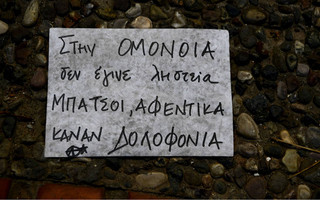 Στην ΟΜΟΝΟΙΑ
δεν έγινε ληστεία
ΜΠΑΤΣΟΙ, ΑΦΕΝΤΙΚΑ
ΚΑΝΑΝ ΔΟΛΟΦΟΝΙΑ